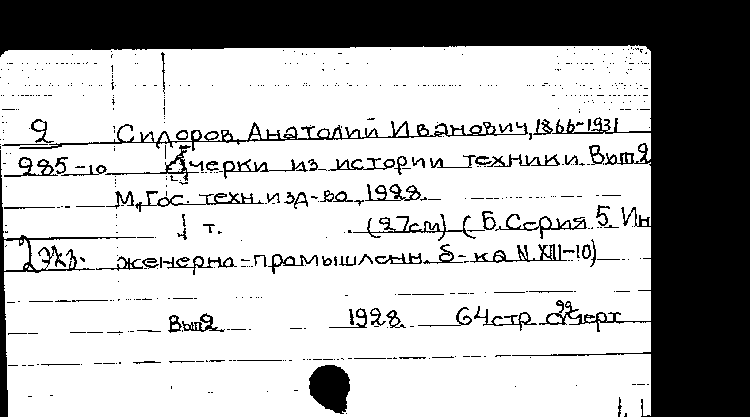 2 Сидоров, Анатолий Иванович, 1866-1931
285-10 Очерки из истории техники. Вып.2
М., Гос. техн. изд-во, 1928.
т. (27см) (Б. Серия 5. Ин
2 экз. женерно-промышленн. б-ка N. XIII-10)
Вып2 1928. 64стр. с 22 черт